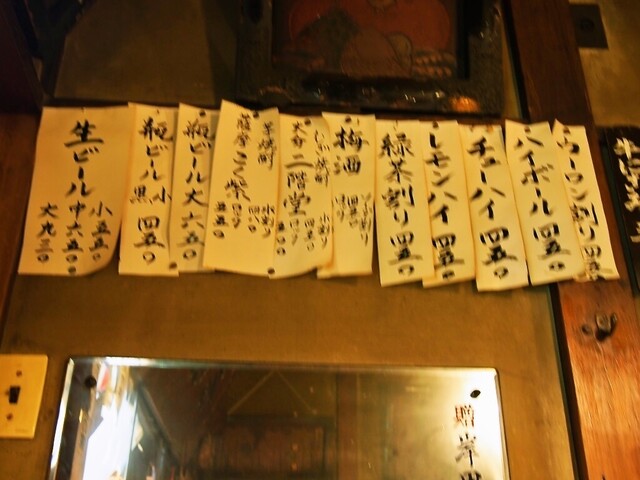 生ビール
小 五五〇
中 六五〇
大 九三〇
瓶ビール
黒 小
四五〇
瓶ビール大 六五〇
芋焼酎
薩摩 こく紫
小割り
五五〇
むぎ焼酎
大分 二階堂
小割り
梅酒
緑茶割り 四五〇
レモンハイ 四五〇
チューハイ 四五〇
ハイボール 四五〇
ウーロン割り 四五〇
贈